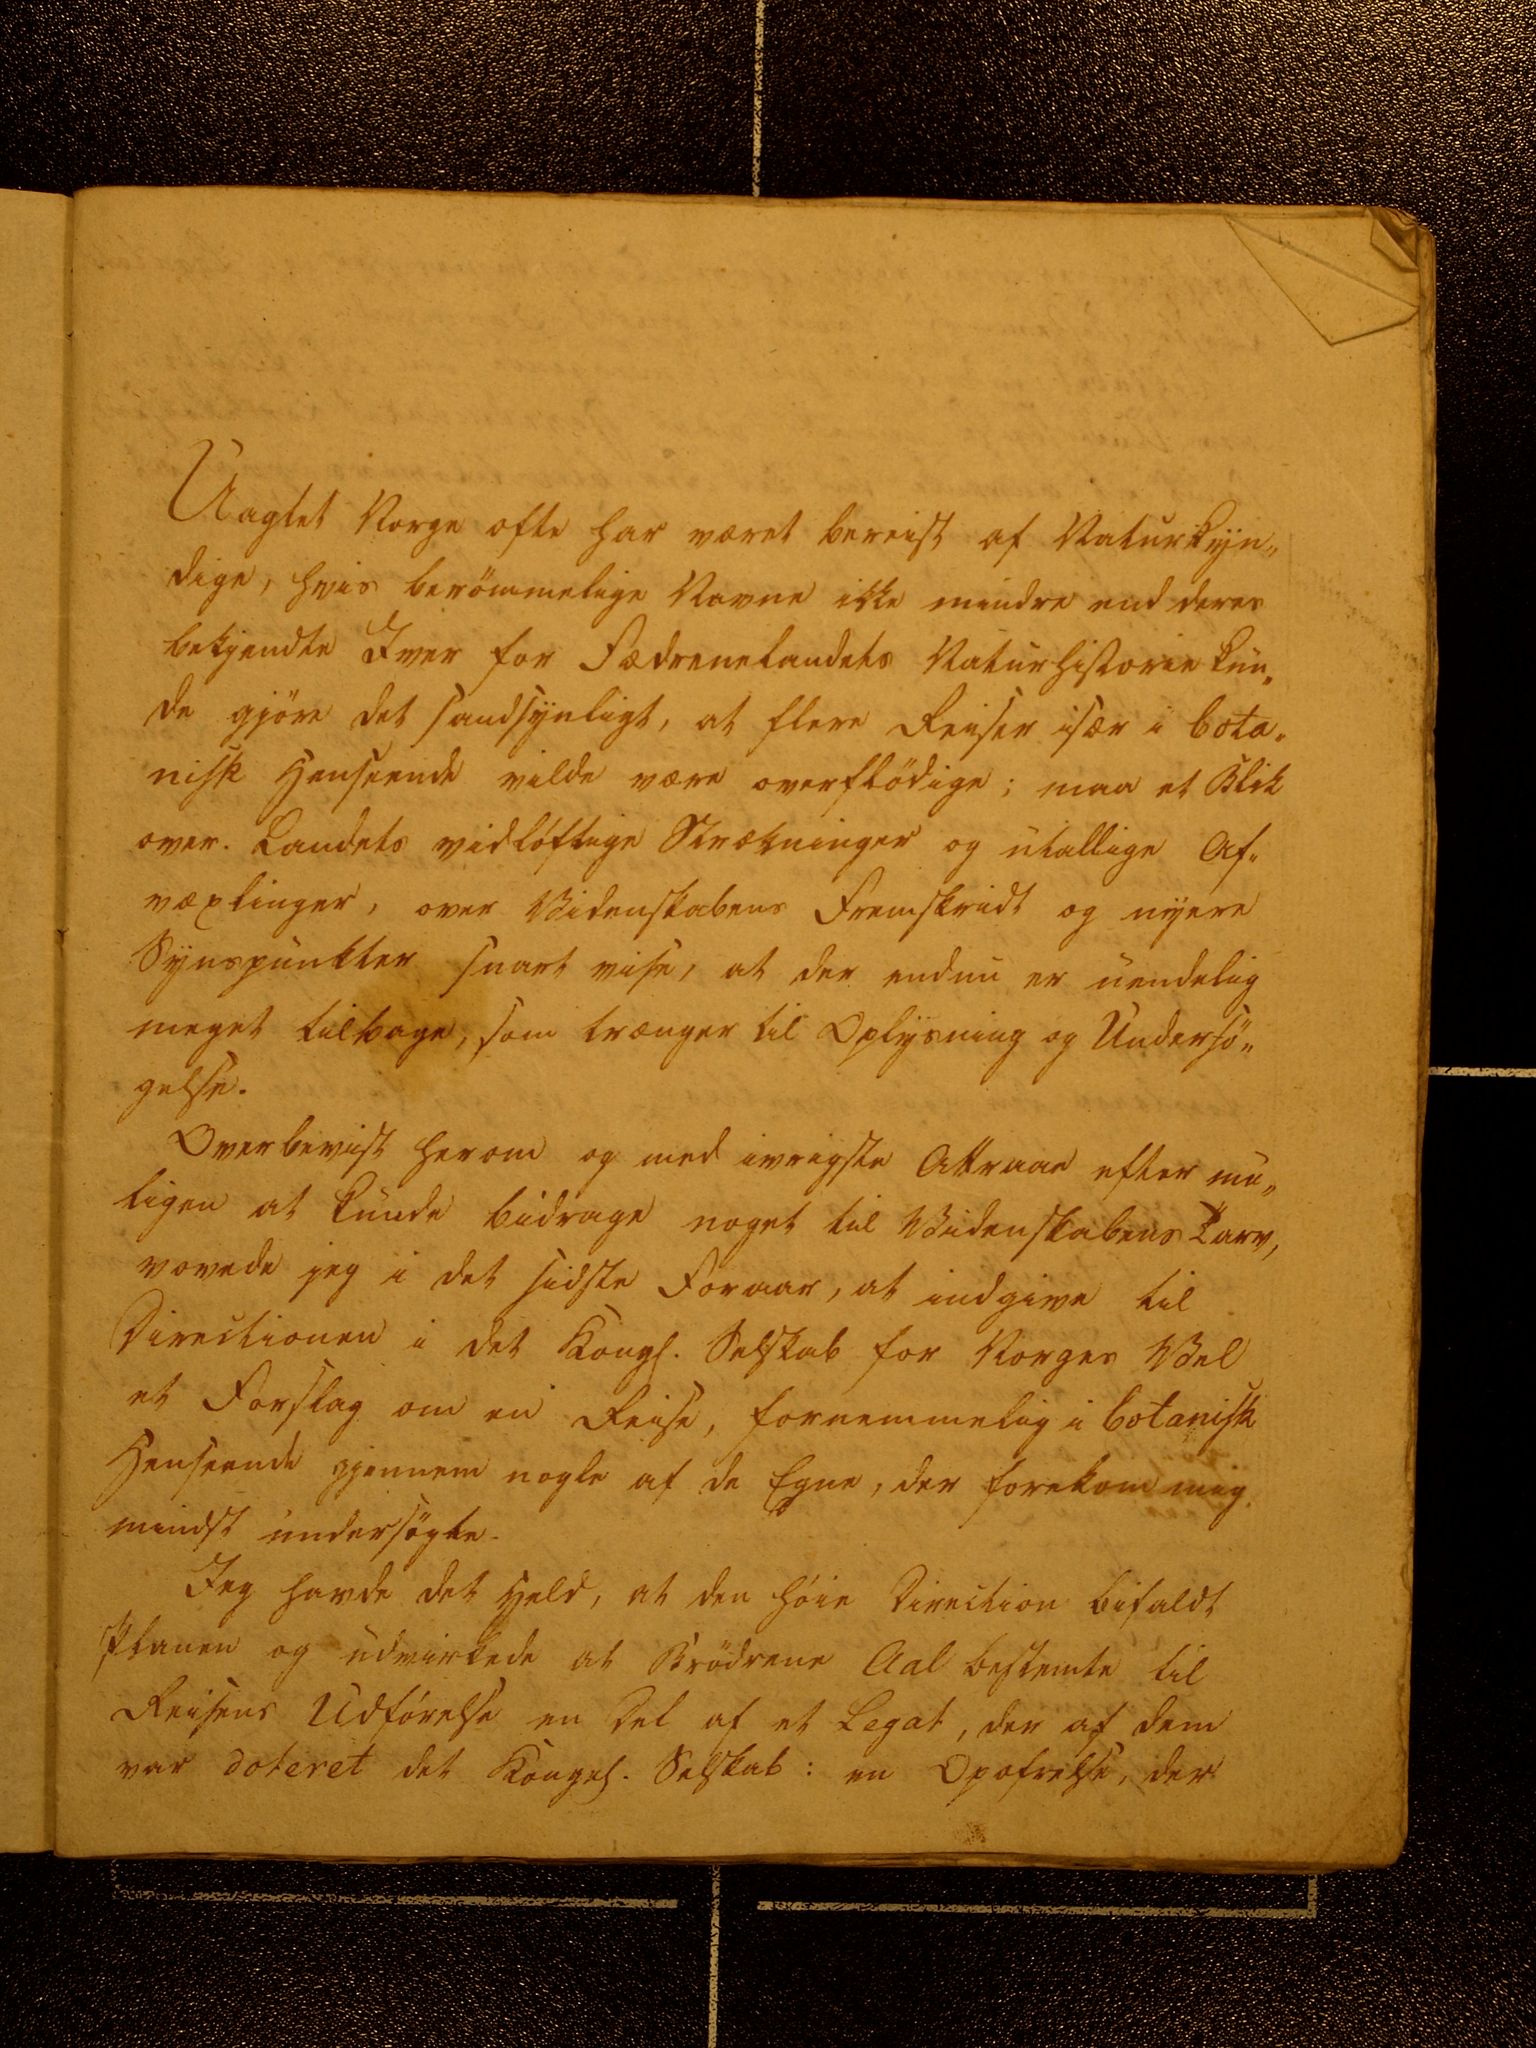 Uagtet Norge ofte har været bereist af Naturkyn-
dige, hvis berömmelige Navne ikke mindre end deres
bekjendte Iver for Fædrenelandets Naturhistorie kun-
de gjöre det sandsynligt, at flere Reiser især i bota-
nisk Henseende vilde være overflödige; maa et Blik
over Landets vidlöftige Strækninger og utallige Af-
vexlinger, over Videnskabens Fremskridt og nyere
Synspunkter snart vise, at der endnu er uendelig
meget tilbage, som trænger til Oplysning og Undersö-
gelse.
Overbevist herom og med ivrigste Attraae efter mu-
ligen at kunde bidrage noget til Videnskabens Tarv,
vovede jeg i det sidste Foraar, at indgive til
Directionen i det Kongl. Selskab for Norges Vel
et Forslag om en Reise, fornemmelig i botanisk
Henseende gjennem nogle af de Egne, der forekom mig
mindst undersögte.
Jeg havde det Held, at den höie Direction bifaldt
Planen og udvirkede at Brödrene Aal bestemte til
Reisens Udförelse en Del af et Legat, der af dem
var doteret det Kongel. Selskab: en Opofrelse, der